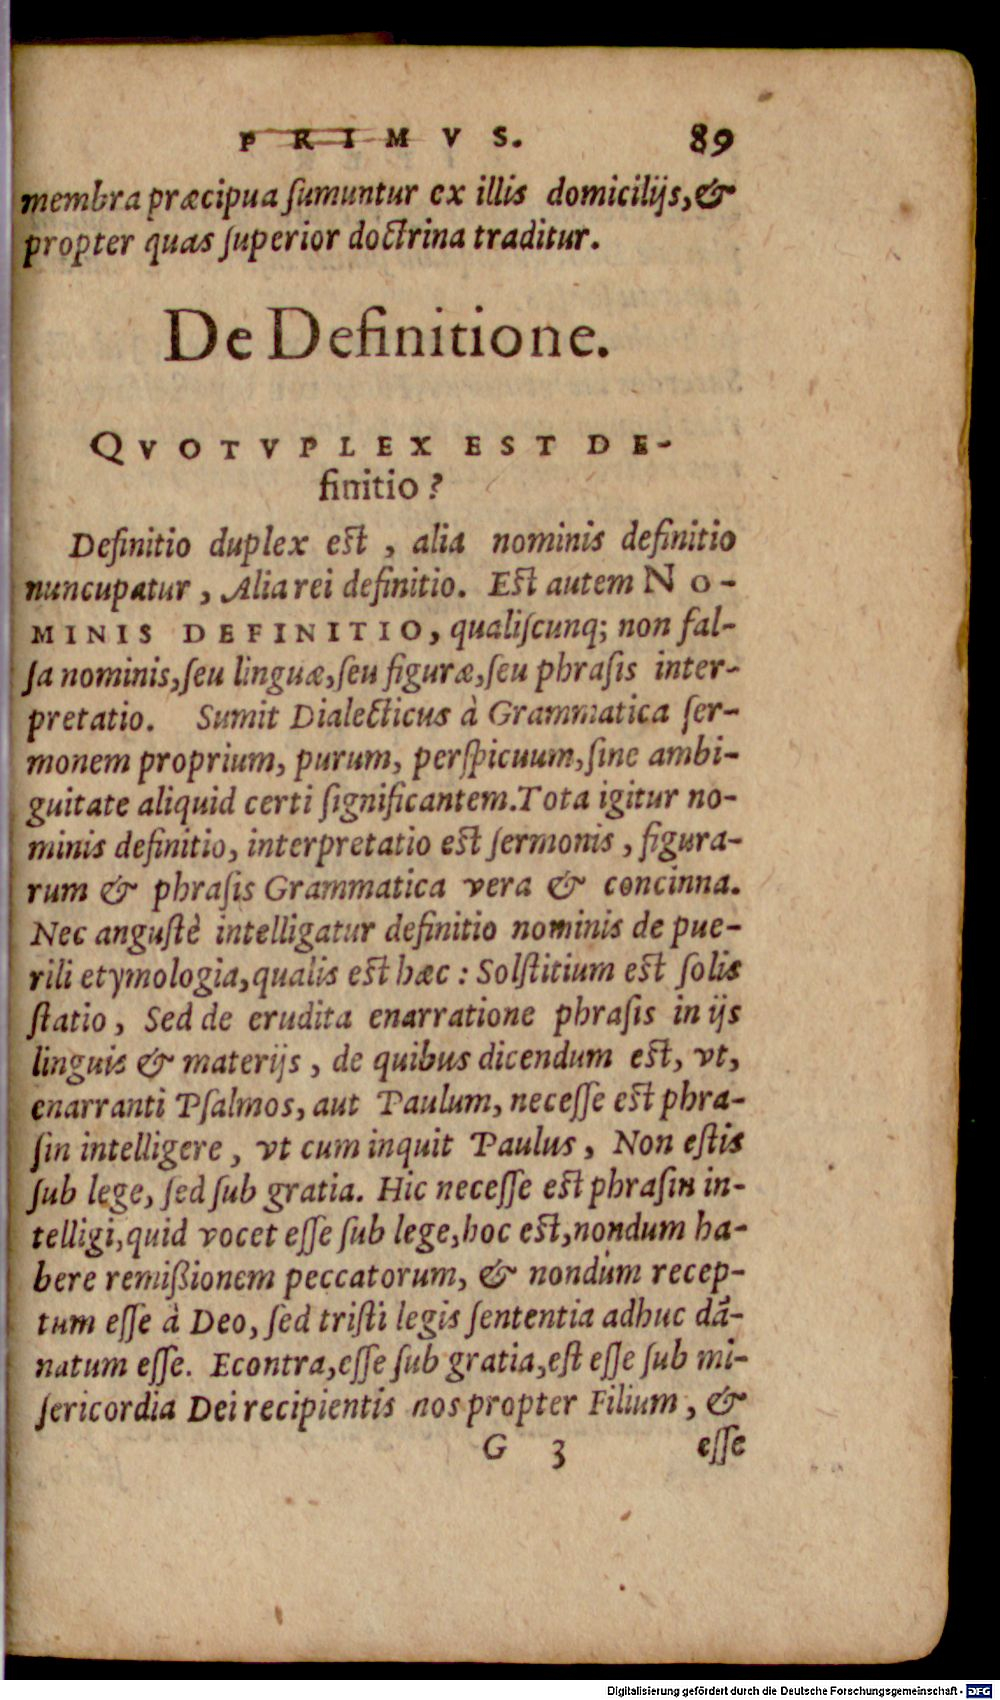 PRIMVS. 89
membra præcipua ſumuntur ex illis domicilijs, &
propter quas ſuperior doctrina traditur.
De Definitione.
QVOTVPLEX EST DE-
finitio?
Definitio duplex est, alia nominis definitio
nuncupatur, Alia rei definitio. Est autem NO-
MINIS DEFINITIO, qualiſcunq; non fal-
ſa nominis, ſeu linguæ, ſeu figuræ, ſeu phraſis inter-
pretatio. Sumit Dialecticus à Grammatica ſer-
monem proprium, purum, perſpicuum, ſine ambi-
guitate aliquid certi ſignificantem. Tota igitur no-
minis definitio, interpretatio est ſermonis, figura-
rum & phraſis Grammatica vera & concinna.
Nec anguſtè intelligatur definitio nominis de pue-
rili etymologia, qualis est hæc: Solſtitium est ſolis
ſtatio, Sed de erudita enarratione phraſis in ijs
linguis & materijs, de quibus dicendum est, vt,
enarranti Pſalmos, aut Paulum, neceſſe est phra-
ſin intelligere, vt cum inquit Paulus, Non eſtis
ſub lege, ſed ſub gratia. Hic neceſſe est phraſin in-
telligi, quid vocet eſſe ſub lege, hoc est, nondum ha-
bere remißionem peccatorum, & nondum recep-
tum eſſe à Deo, ſed triſti legis ſententia adhuc dā-
natum eſſe. Econtra, eſſe ſub gratia, eſt eſſe ſub mi-
ſericordia Dei recipientis nos propter Filium, &
G 3 eſſe
Digitalisierung gefördert durch die Deutsche Forschungsgemeinschaft - DFG